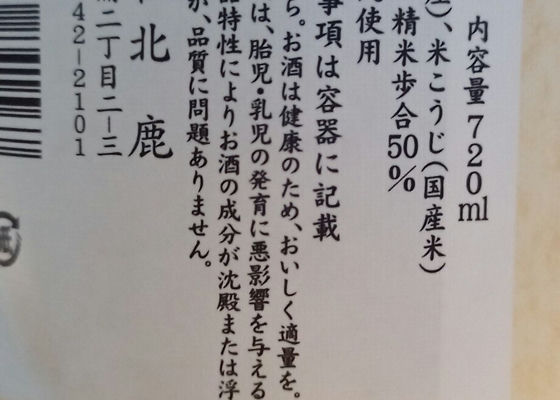 内容量 720ml
、米こうじ（国産米）
精米歩合50%
使用
事項は容器に記載
ら。お酒は健康のため、おいしく適量を。
は、胎児・乳児の発育に悪影響を与える
特性によりお酒の成分が沈殿または浮
が、品質に問題ありません。
北鹿
二丁目二-三
42-2101